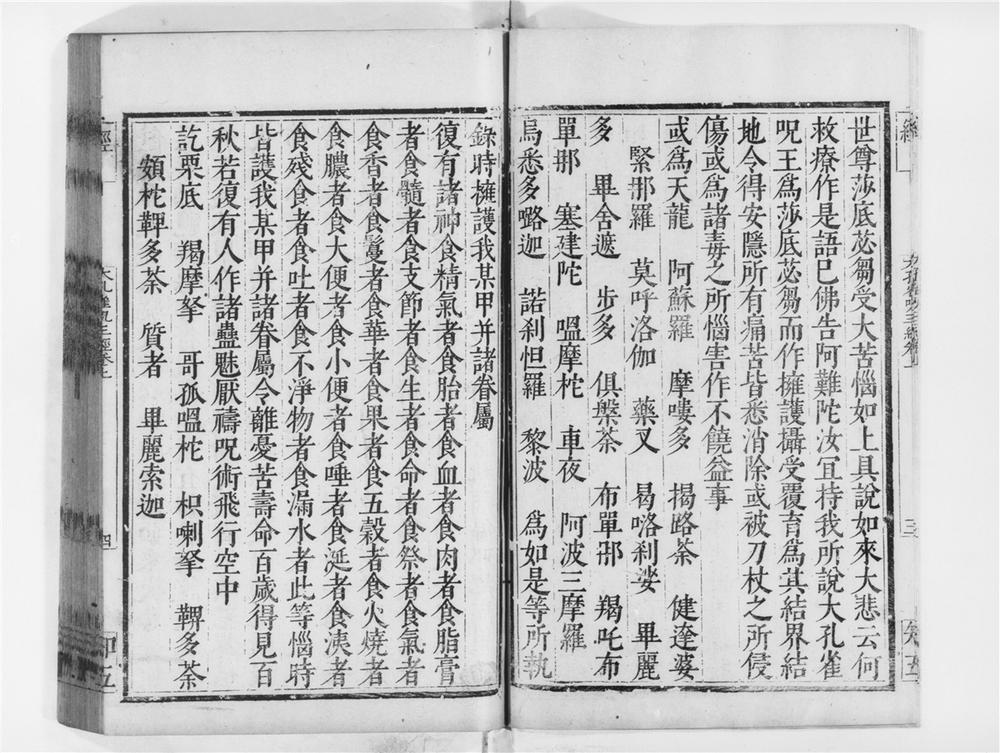 世尊莎底苾芻受大苦惱如上具說如來大悲云何
救療作是語已佛告阿難陀汝宜持我所說大孔雀
呪王為莎底苾芻而作擁護攝受覆育為其結界結
地令得安隱所有痛苦皆悉消除或被刀杖之所侵
傷或為諸毒之所惱害作不饒益事
或為天龍 阿蘇羅 摩嘍多 揭路荼 健達婆
緊那羅 莫呼洛伽 藥叉 曷咯利娑 畢麗
多 畢舍遮 步多 俱槃茶 布單那 羯吒布
單那 塞建陀 嗢摩柁 車夜 阿波三摩羅
烏悉多囉迦 諾剎怛羅 黎波 為如是等所執
錄時擁護我某甲并諸眷屬
復有諸神食精氣者食胎者食血者食肉者食脂膏
者食髓者食支節者食生者食命者食祭者食氣者
食香者食鬘者食華者食果者食五穀者食火燒者
食膿者食大便者食小便者食唾者食涎者食洟者
食殘食者食吐者食不淨物者食漏水者此等惱時
皆護我某甲并諸眷屬令離憂苦壽命百歲得見百
秋若復有人作諸蠱魅厭禱呪術飛行空中
訖栗底 羯摩拏 哥孤嗢柁 枳喇拏 鞞多荼
頞柁鞞多荼 質者 畢麗索迦
經
三
四